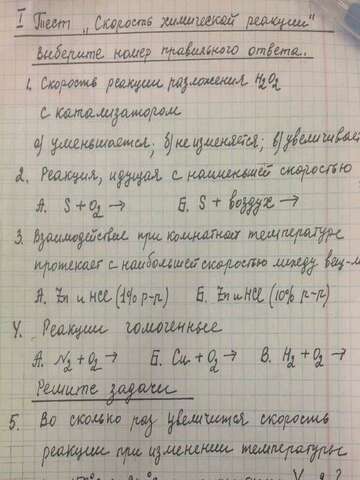 I Тест „Скорость химической реакции"
Выберите номер правильного ответа..
1. Скорость реакции разложения H₂O₂
с катализатором
а) уменьшается; б) не изменяется; в) увеличивае
2. Реакция, идущая с наименьшей скоростью
А. S + O₂ → Б. S + воздух →
3. Взаимодействие при комнатной температуре
протекает с наибольшей скоростью между вещ-м
А. Zn и HCl (1% р-р) Б. Zn и HCl (10% р-р)
4. Реакции гомогенные
А. N₂ + O₂ → Б. Cu + O₂ → В. H₂ + O₂ →
Решите задачи
5. Во сколько раз увеличится скорость
реакции при изменении температуры